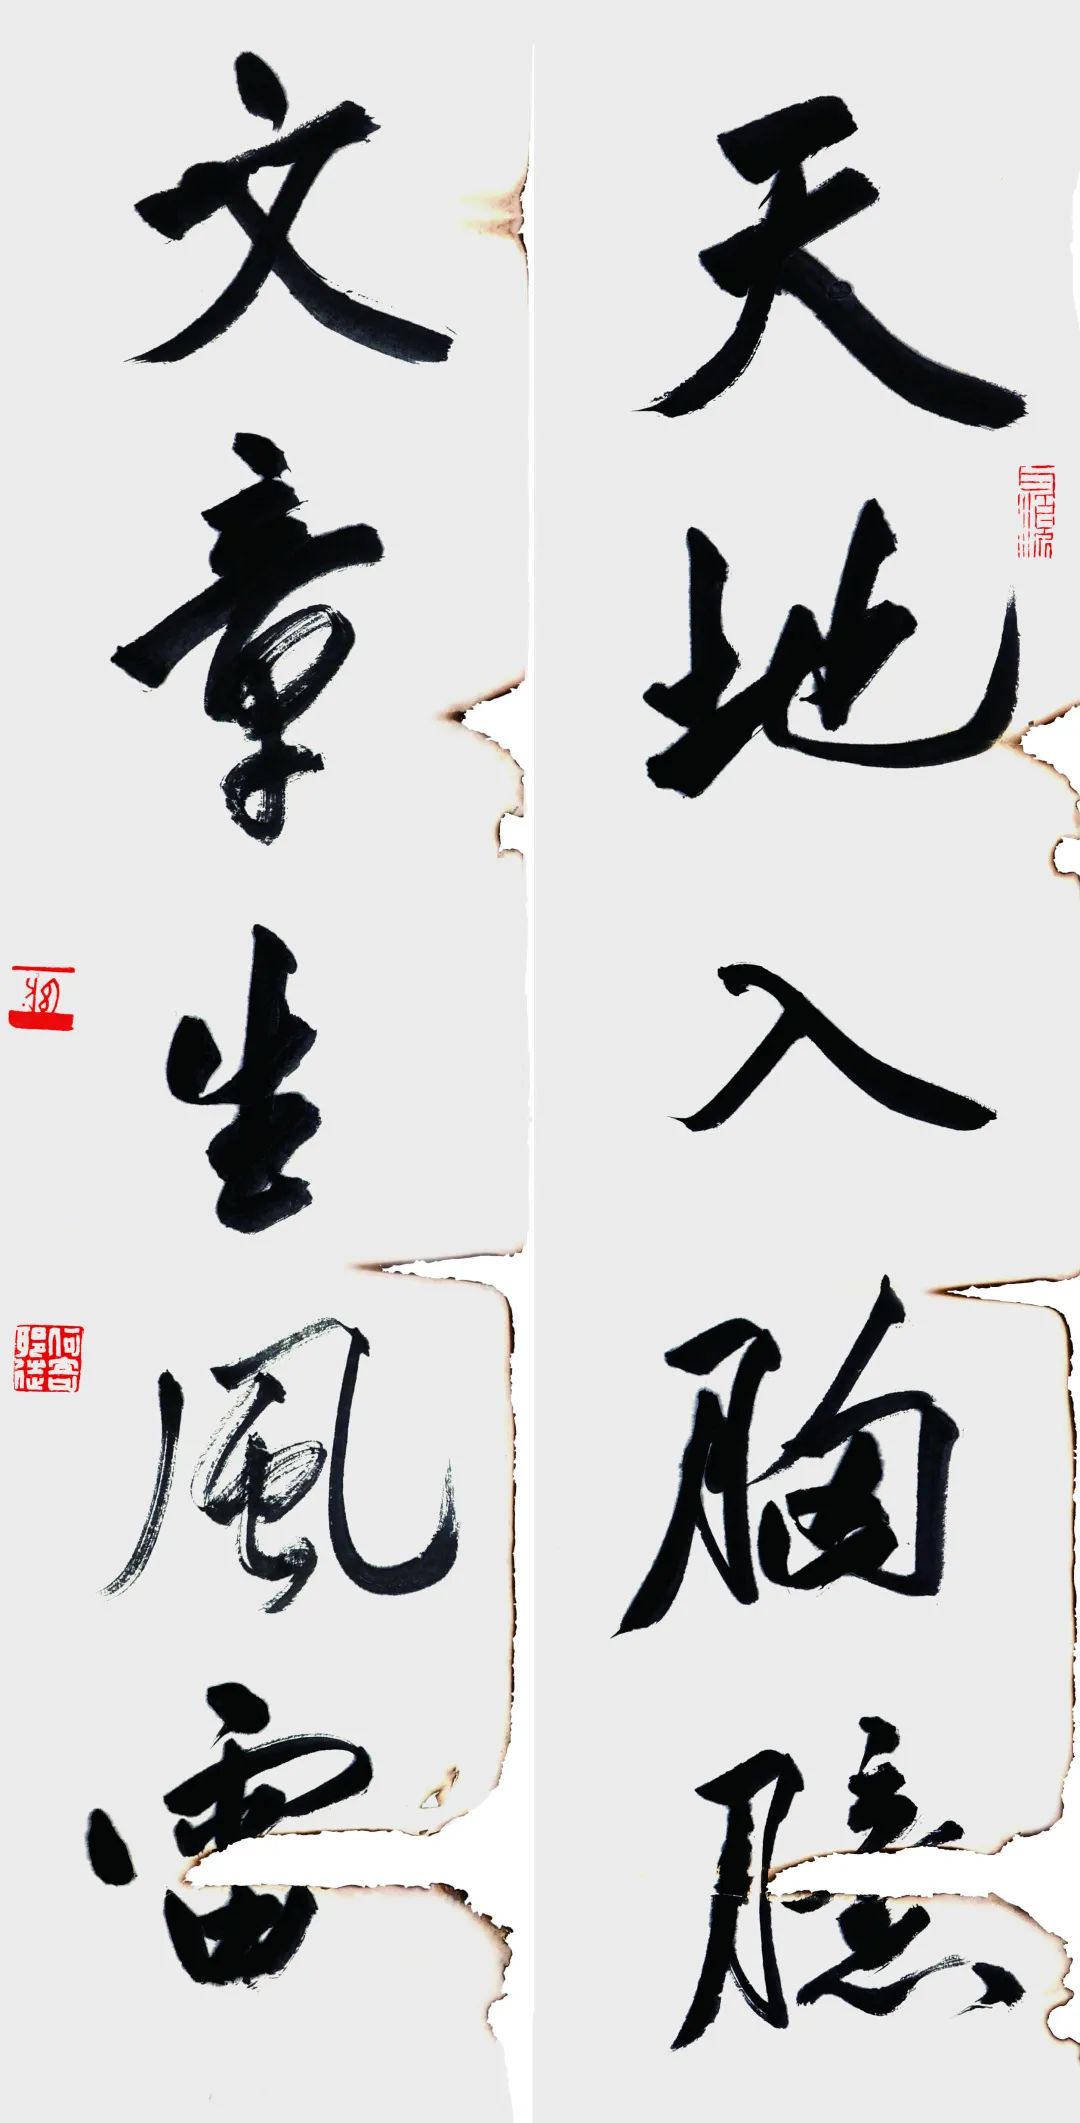 天地入胸臆
文章生風雷